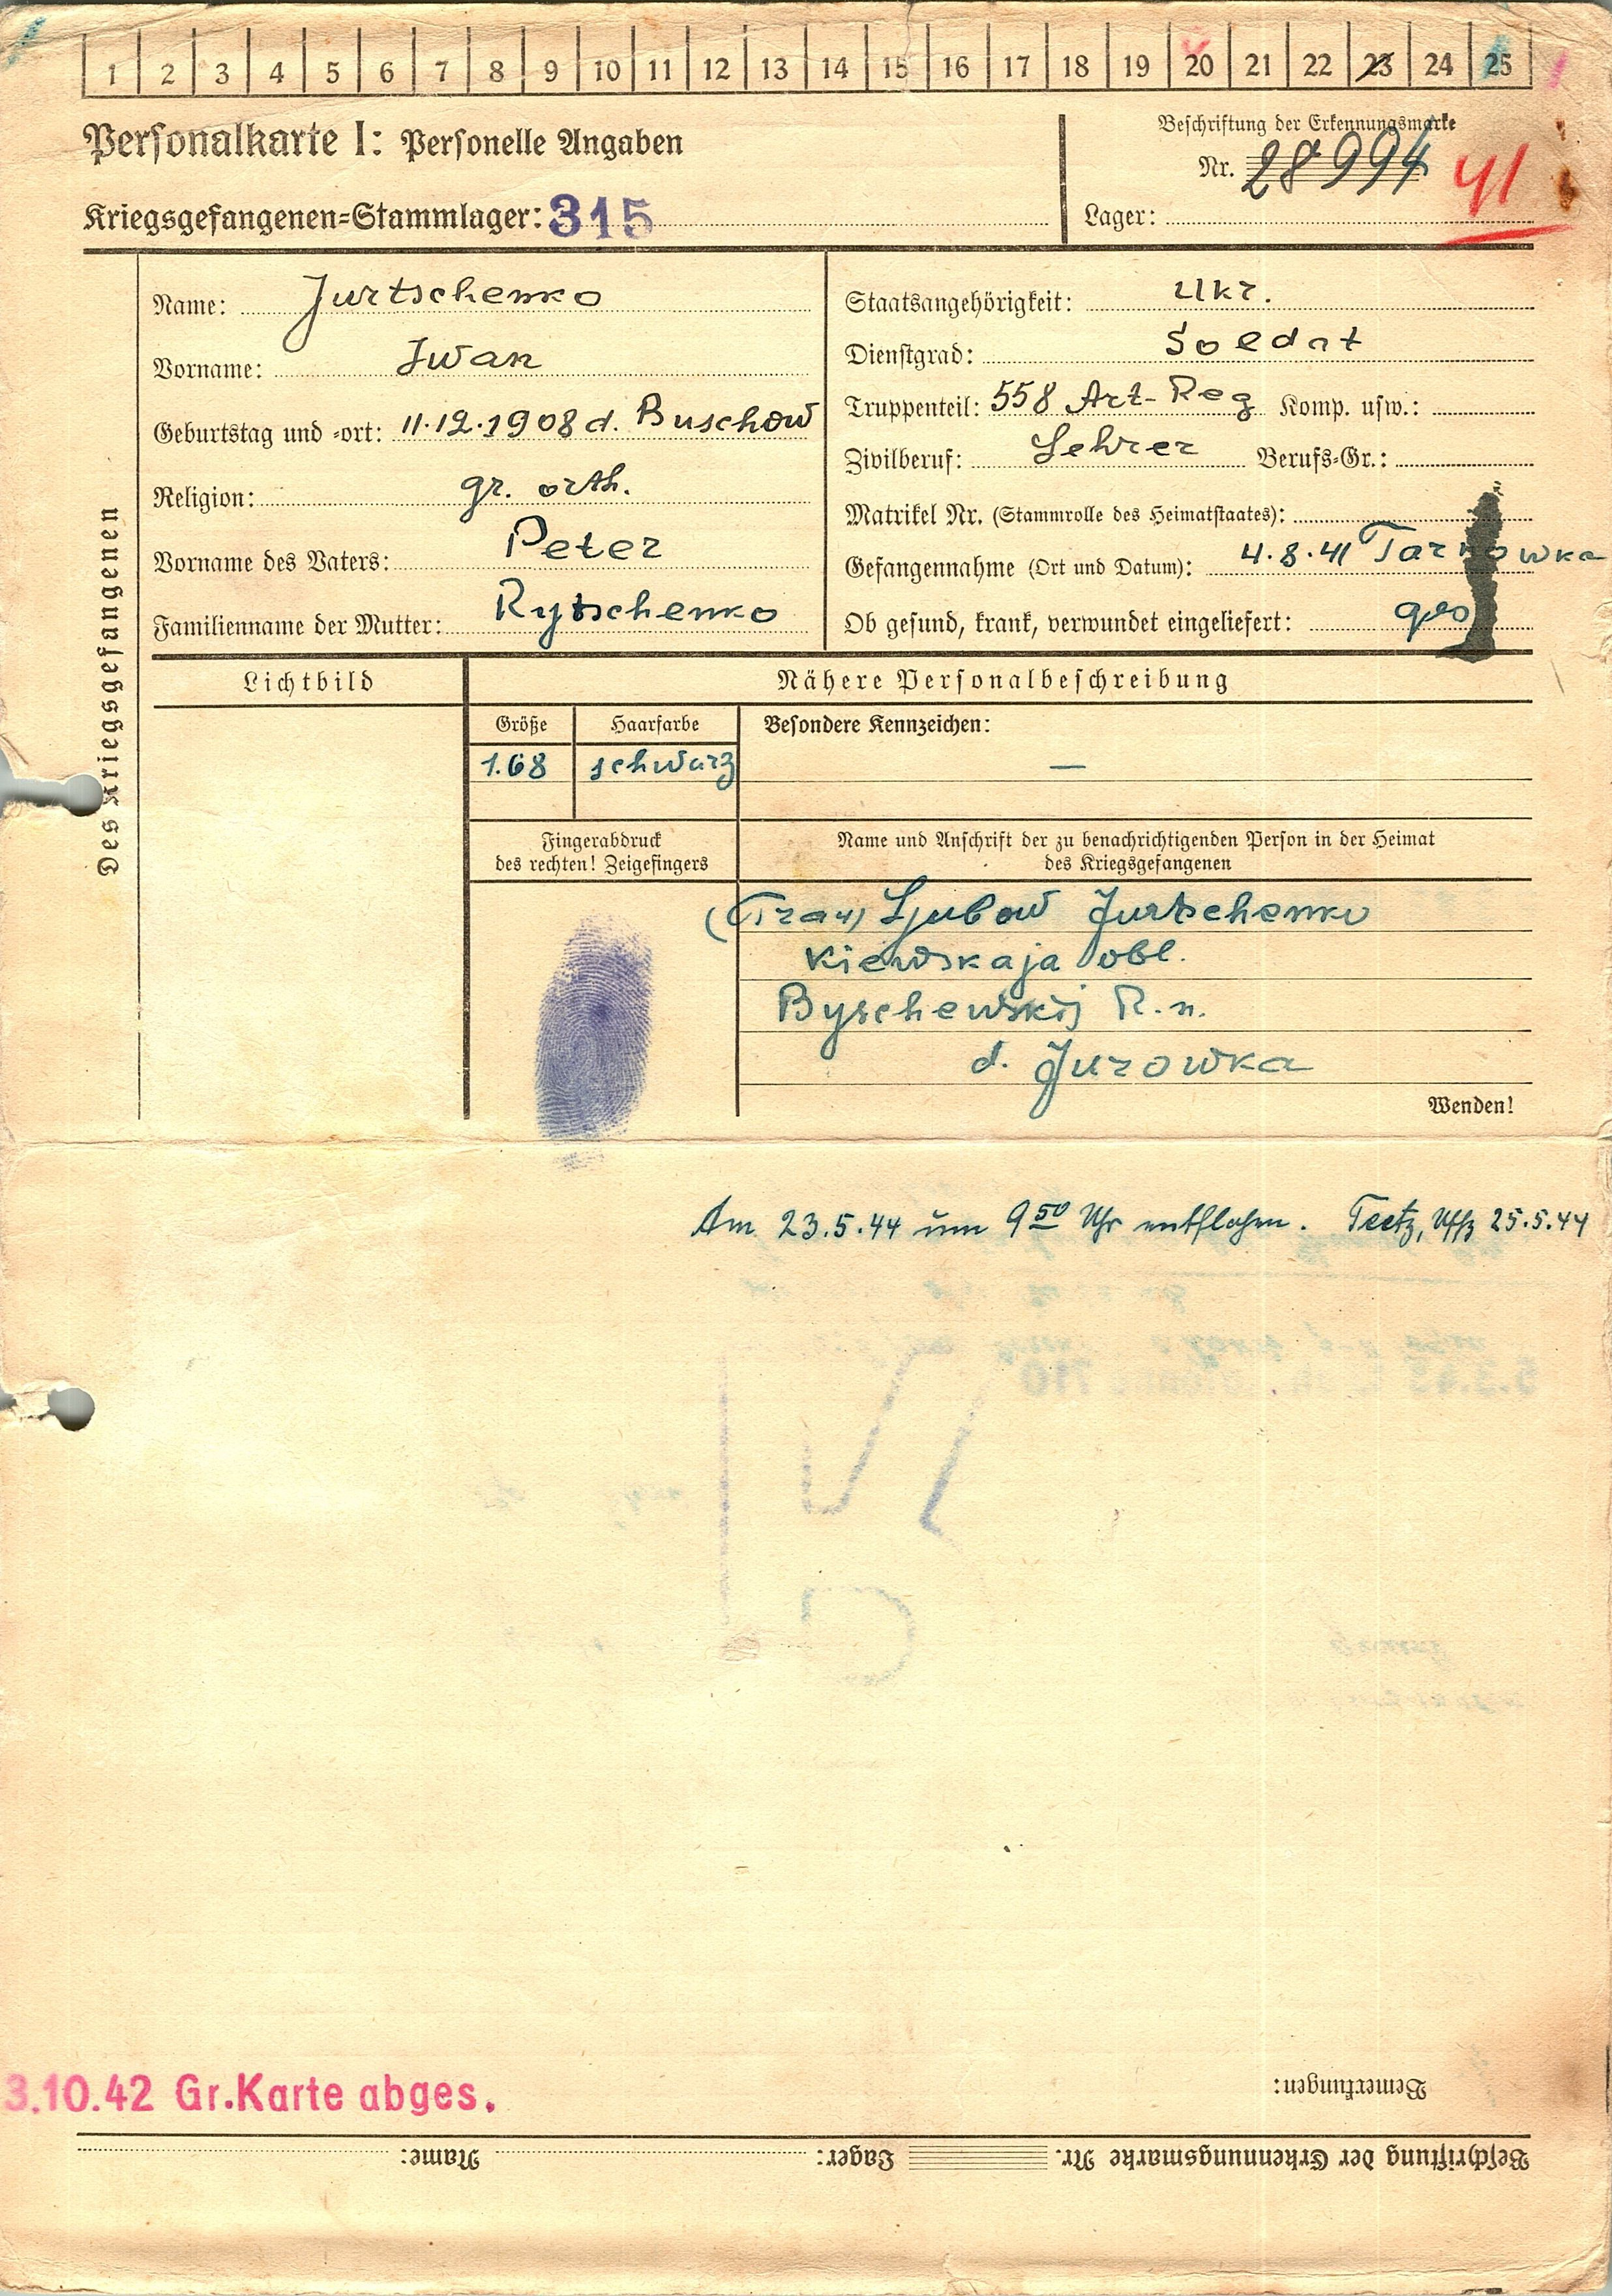 1 2 3 4 5 6 7 8 9 10 11 12 13 14 15 16 17 18 19 20 21 22 23 24 25
Personalkarte I: Personelle Angaben
Beschriftung der Erkennungsmarke
Nr. 28994 41
Kriegsgefangenen-Stammlager: 315
Lager:
Des Kriegsgefangenen
Name: Jurtschenko
Vorname: Iwan
Geburtstag und -ort: 11.12.1908 d. Buschow
Religion: gr. orth.
Vorname des Vaters: Peter
Familienname der Mutter: Rytschenko
Staatsangehörigkeit: Ukr.
Dienstgrad: Soldat
Truppenteil: 558 Art-Reg Komp. usw.:
Zivilberuf: Lehrer Berufs-Gr.:
Matrikel Nr. (Stammrolle des Heimatstaates):
Gefangennahme (Ort und Datum): 4.8.41 Tarnowka
Ob gesund, krank, verwundet eingeliefert: ges
Lichtbild
Nähere Personalbeschreibung
Größe Haarfarbe Besondere Kennzeichen:
1.68 schwarz —
Fingerabdruck
des rechten! Zeigefingers
Name und Anschrift der zu benachrichtigenden Person in der Heimat
des Kriegsgefangenen
(Frau) Ljubow Jurtschenko
Kiewskaja obl.
Byschewskij R.n.
d. Jurowka
Wenden!
Am 23.5.44 um 9 50 Uhr entflohen. Teetz, Uffz 25.5.44
Bemerkungen:
3.10.42 Gr.Karte abges.
Beschriftung der Erkennungsmarke Nr. Lager: Name: